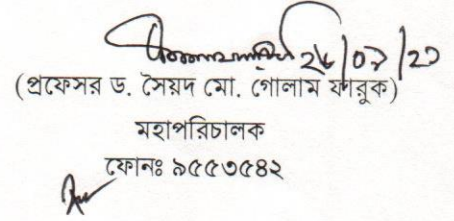 (প্রফেসর ড. সৈয়দ মো. গোলাম ফারুক)
মহাপরিচালক
ফোনঃ ৯৫৫৩৫৪২